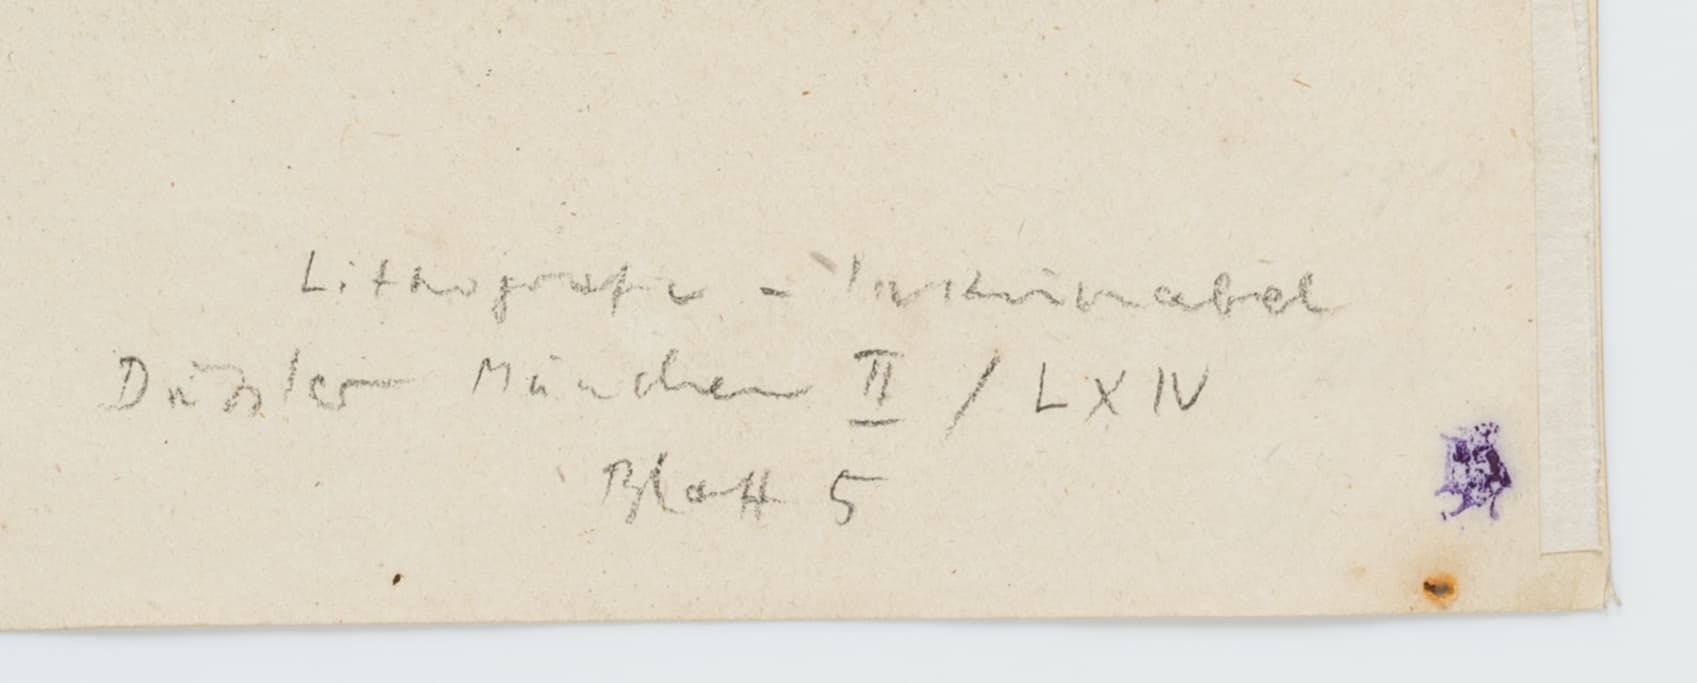 Lithografie - Inkunabel
Düssler München II / LXIV
Blatt 5